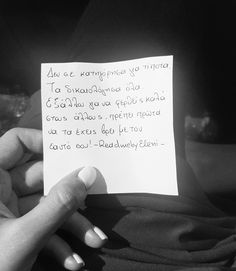 Δεν σε κατηγόρησα για τίποτα
Τα δικαιολόγησα όλα
Εξάλλου για να φερθείς καλά
στους άλλους, πρέπει πρώτα
να τα έχεις βρει με τον
εαυτό σου! -Readmebyeleni-